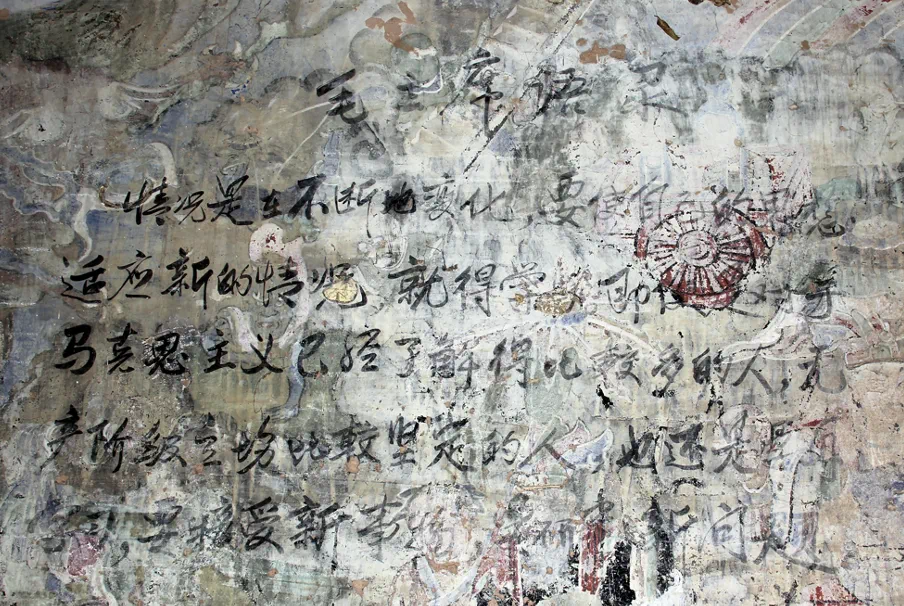 毛主席语录
情况是在不断地变化,要使自己的思想
适应新的情况,就得学习 即使是对于
马克思主义已经了解得比较多的人,无
产阶级立场比较坚定的人,也还是要再
学习,要接受新事物,要研究新问题